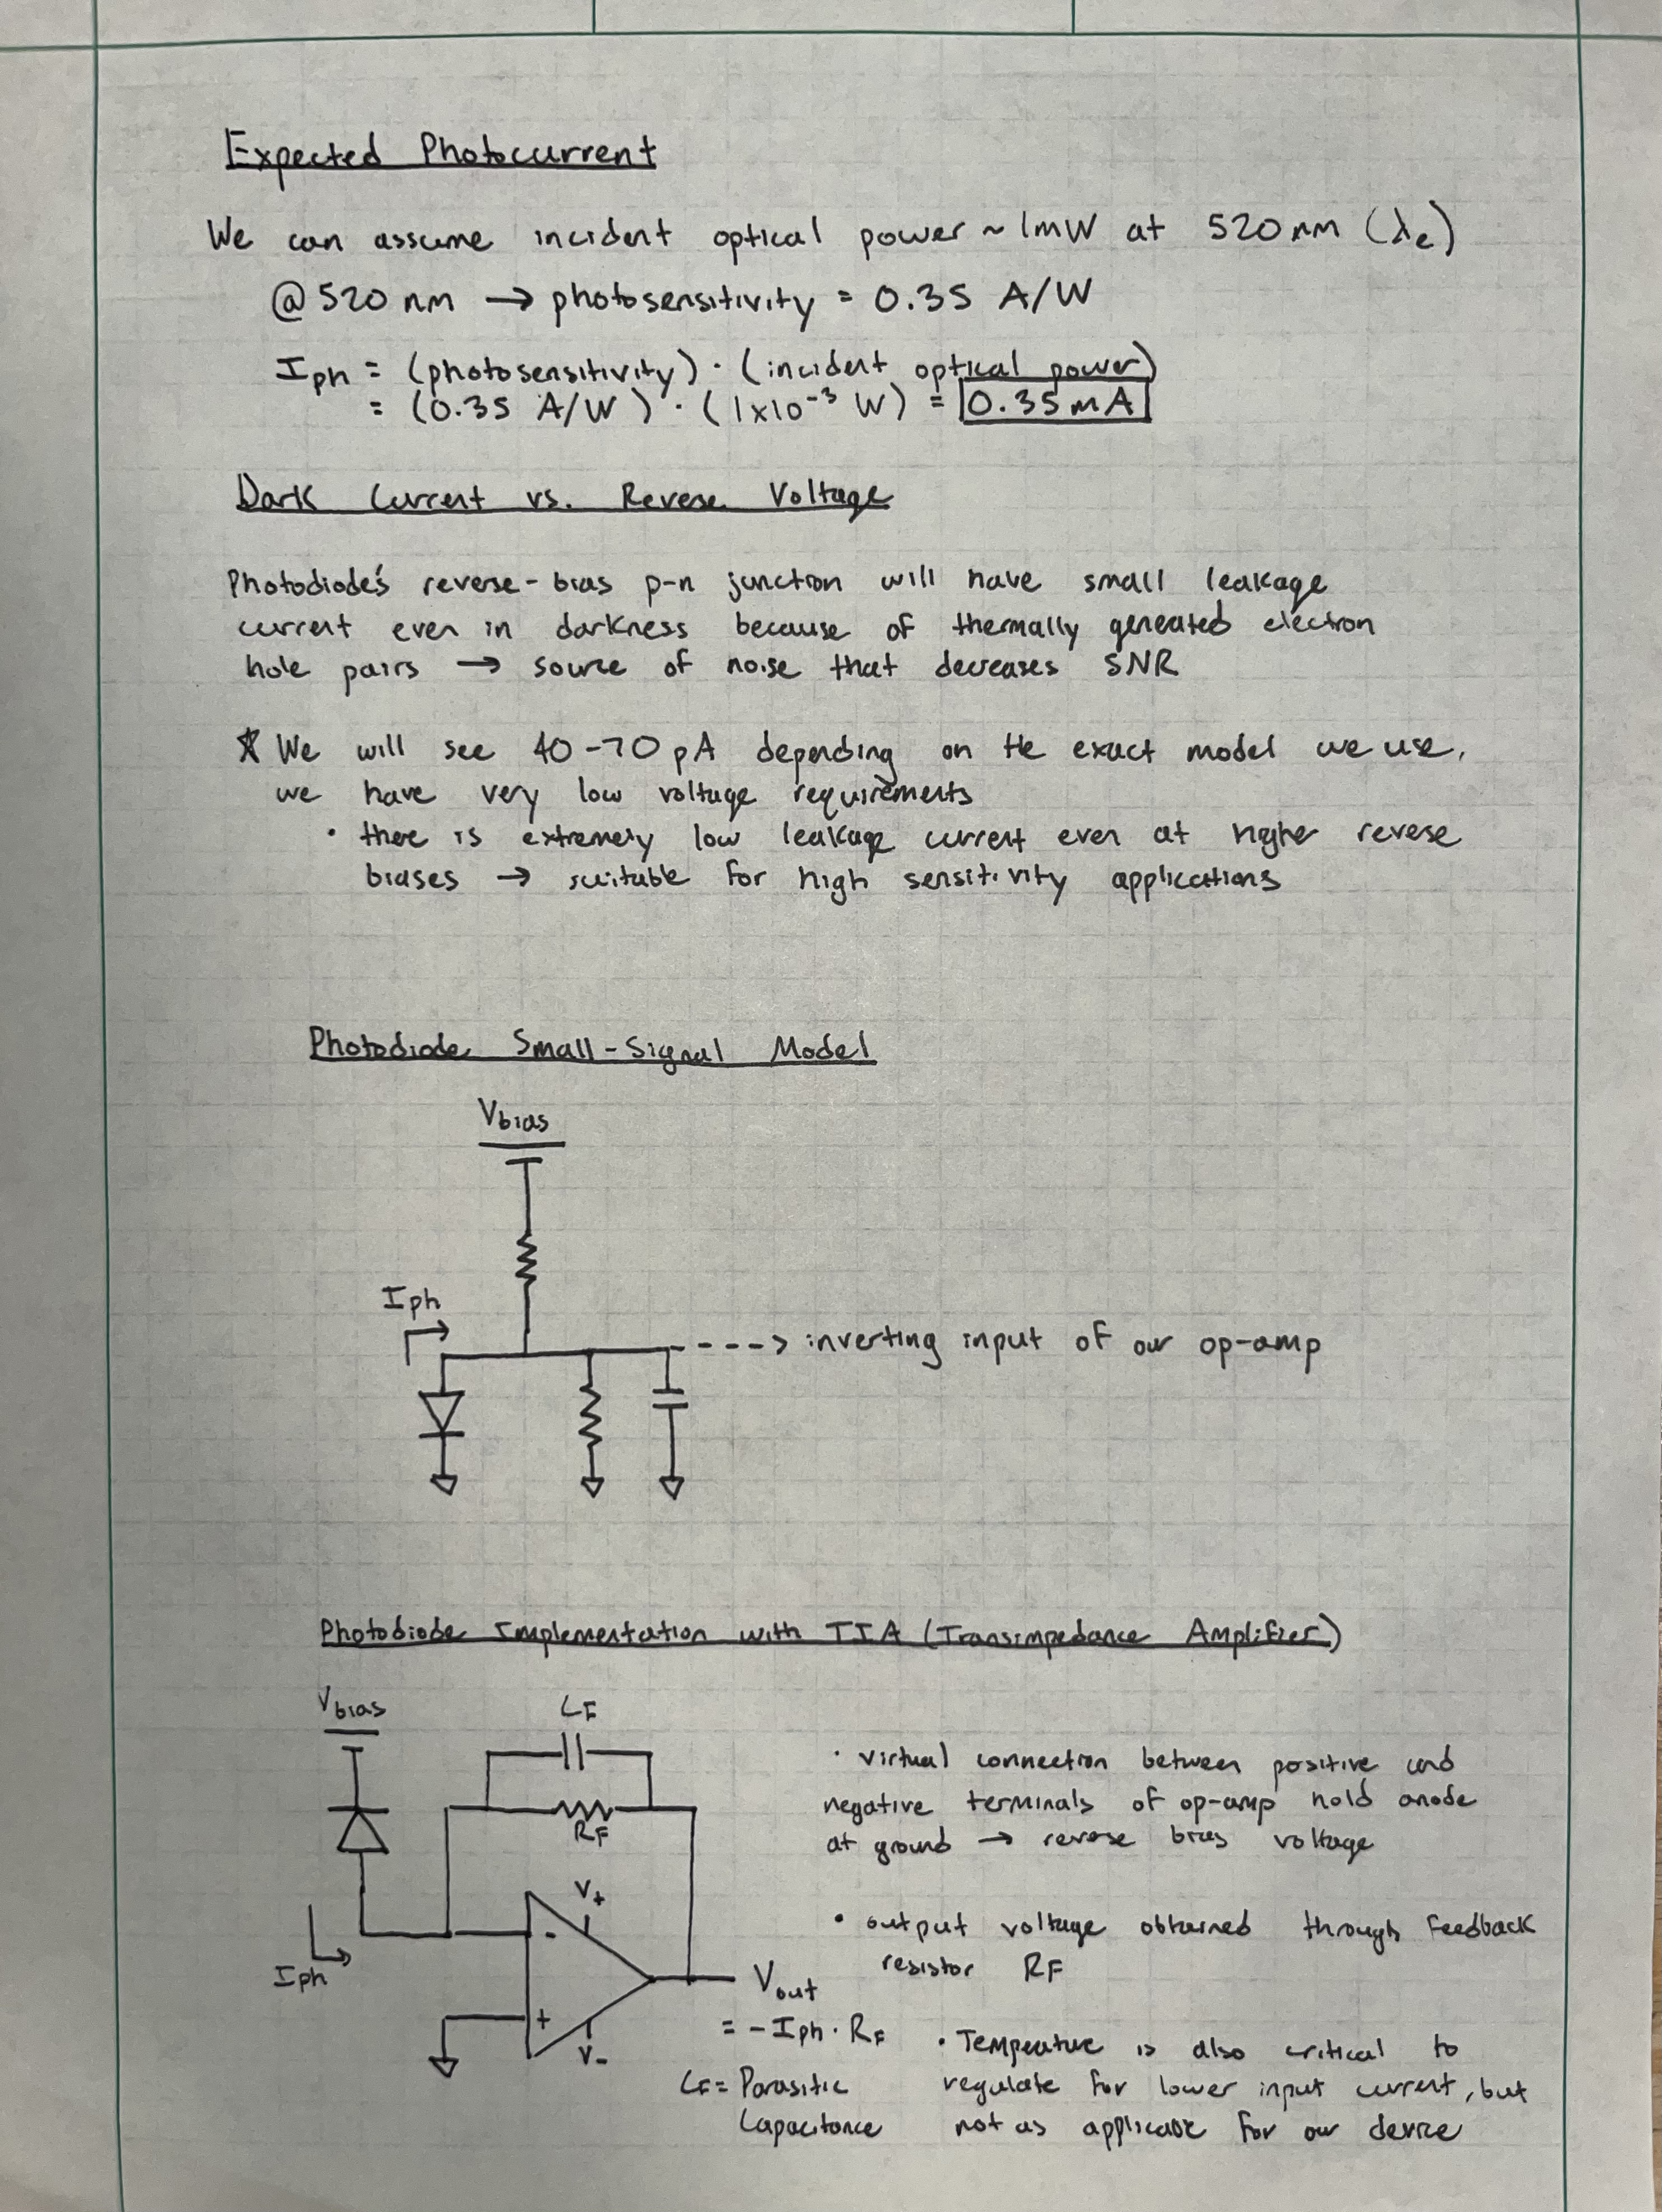 Expected Photocurrent
We can assume incident optical power ~ 1mW at 520 nm (λe)
@ 520 nm → photosensitivity = 0.35 A/W
Iph = (photosensitivity) · (incident optical power)
= (0.35 A/W) · (1x10⁻³ W) = 0.35mA
Dark Current vs. Reverse Voltage
Photodiode's reverse-bias p-n junction will have small leakage
current even in darkness because of thermally generated electron
hole pairs → source of noise that decreases SNR
* We will see 40-70 pA depending on the exact model we use,
we have very low voltage requirements
· there is extremely low leakage current even at higher reverse
biases → suitable for high sensitivity applications
Photodiode Small-Signal Model
Vbias
Iph
----> inverting input of our op-amp
Photodiode Implementation with TIA (Transimpedance Amplifier)
Vbias
CF
RF
V+
-
Iph
+
V-
Vout
= -Iph · RF
CF = Parasitic
Capacitance
· virtual connection between positive and
negative terminals of op-amp hold anode
at ground → reverse bias voltage
· output voltage obtained through feedback
resistor RF
· Temperature is also critical to
regulate for lower input current, but
not as applicable for our device